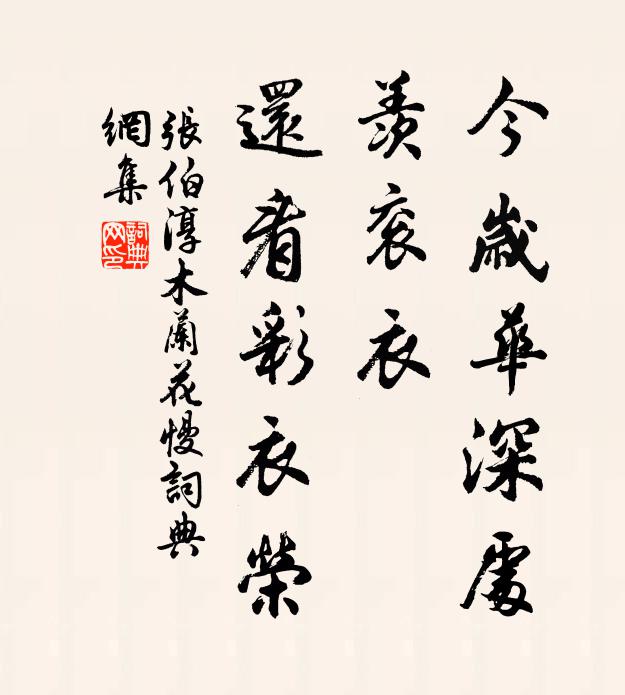 今歲華深處
羨袞衣
還看彩衣榮
張伯淳木蘭花慢詞典
網集
詞典
网印